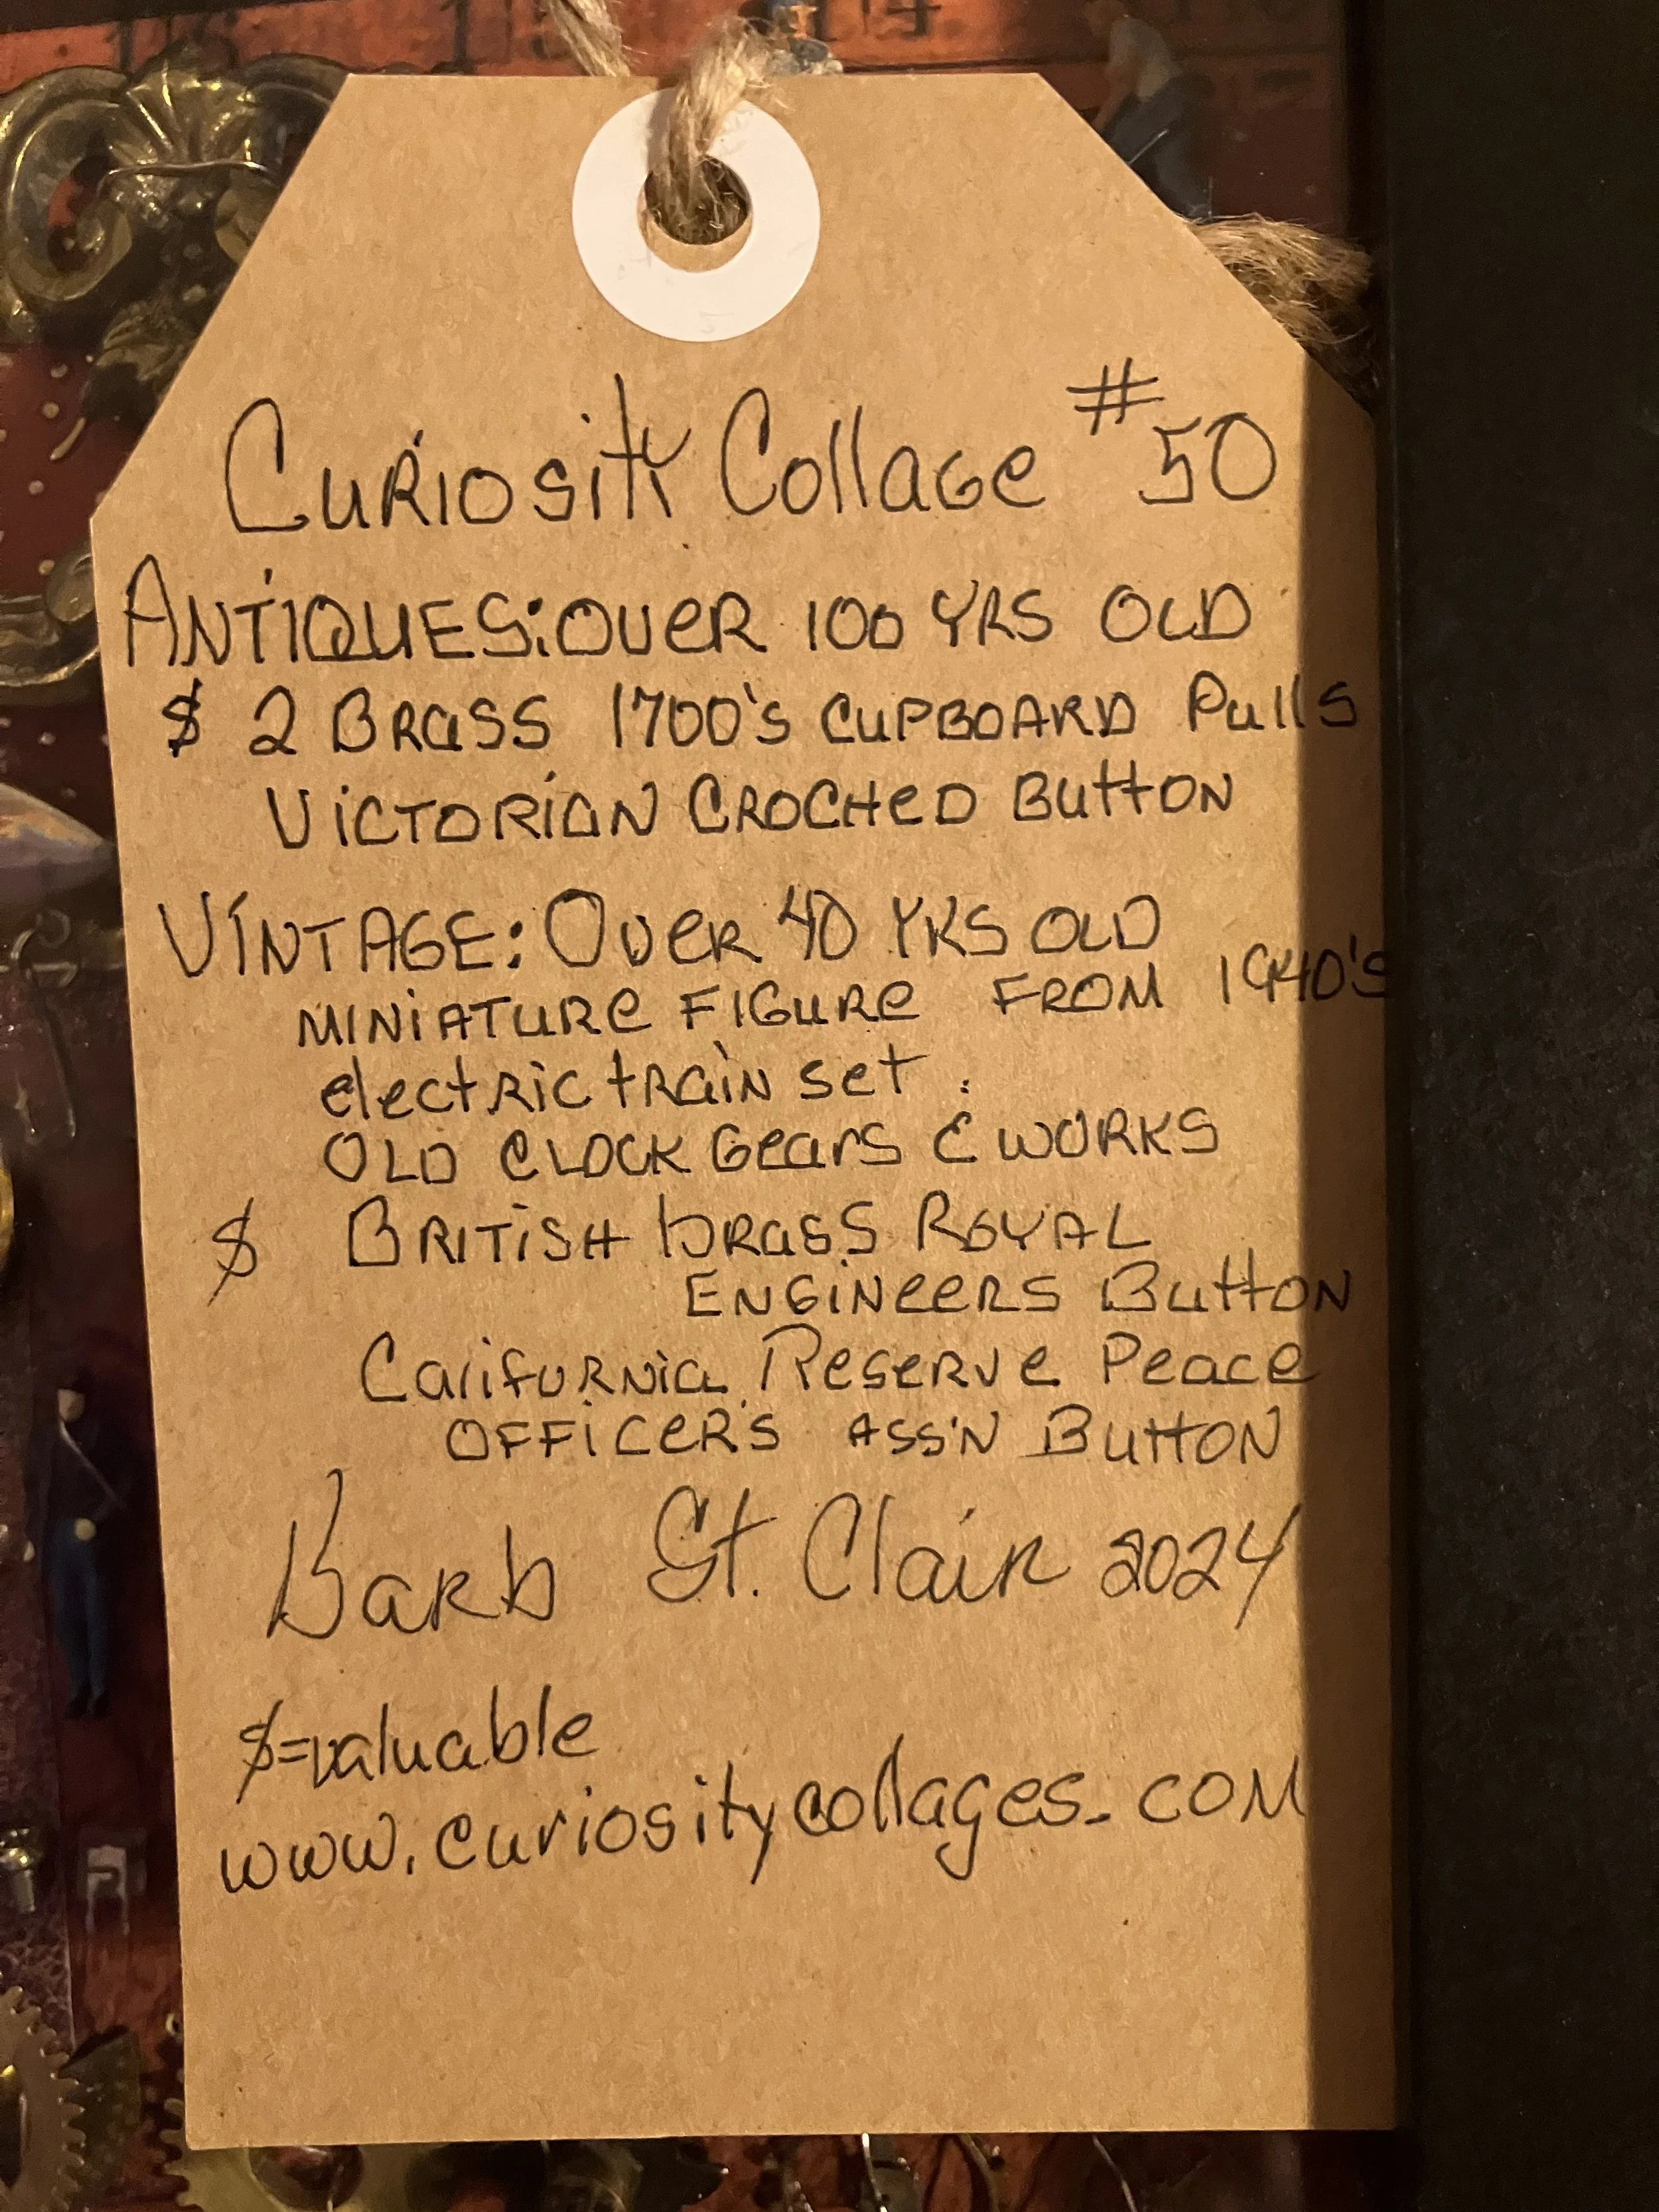 Curiosity Collage #50
ANTIQUES: OVER 100 YRS OLD
$ 2 BRASS 1700's CUPBOARD Pulls
VICTORIAN CROCHED BUTTON
VINTAGE: OVER 40 YRS OLD
MINIATURE FIGURE FROM 1940'S
electric train set.
OLD CLOCK Gears & WORKS
$ BRITISH brass ROYAL
ENGINEERS BUTTON
California Reserve Peace
OFFICER'S ASS'N BUTTON
Barb St. Clair 2024
$=valuable
www.curiositycollages.com